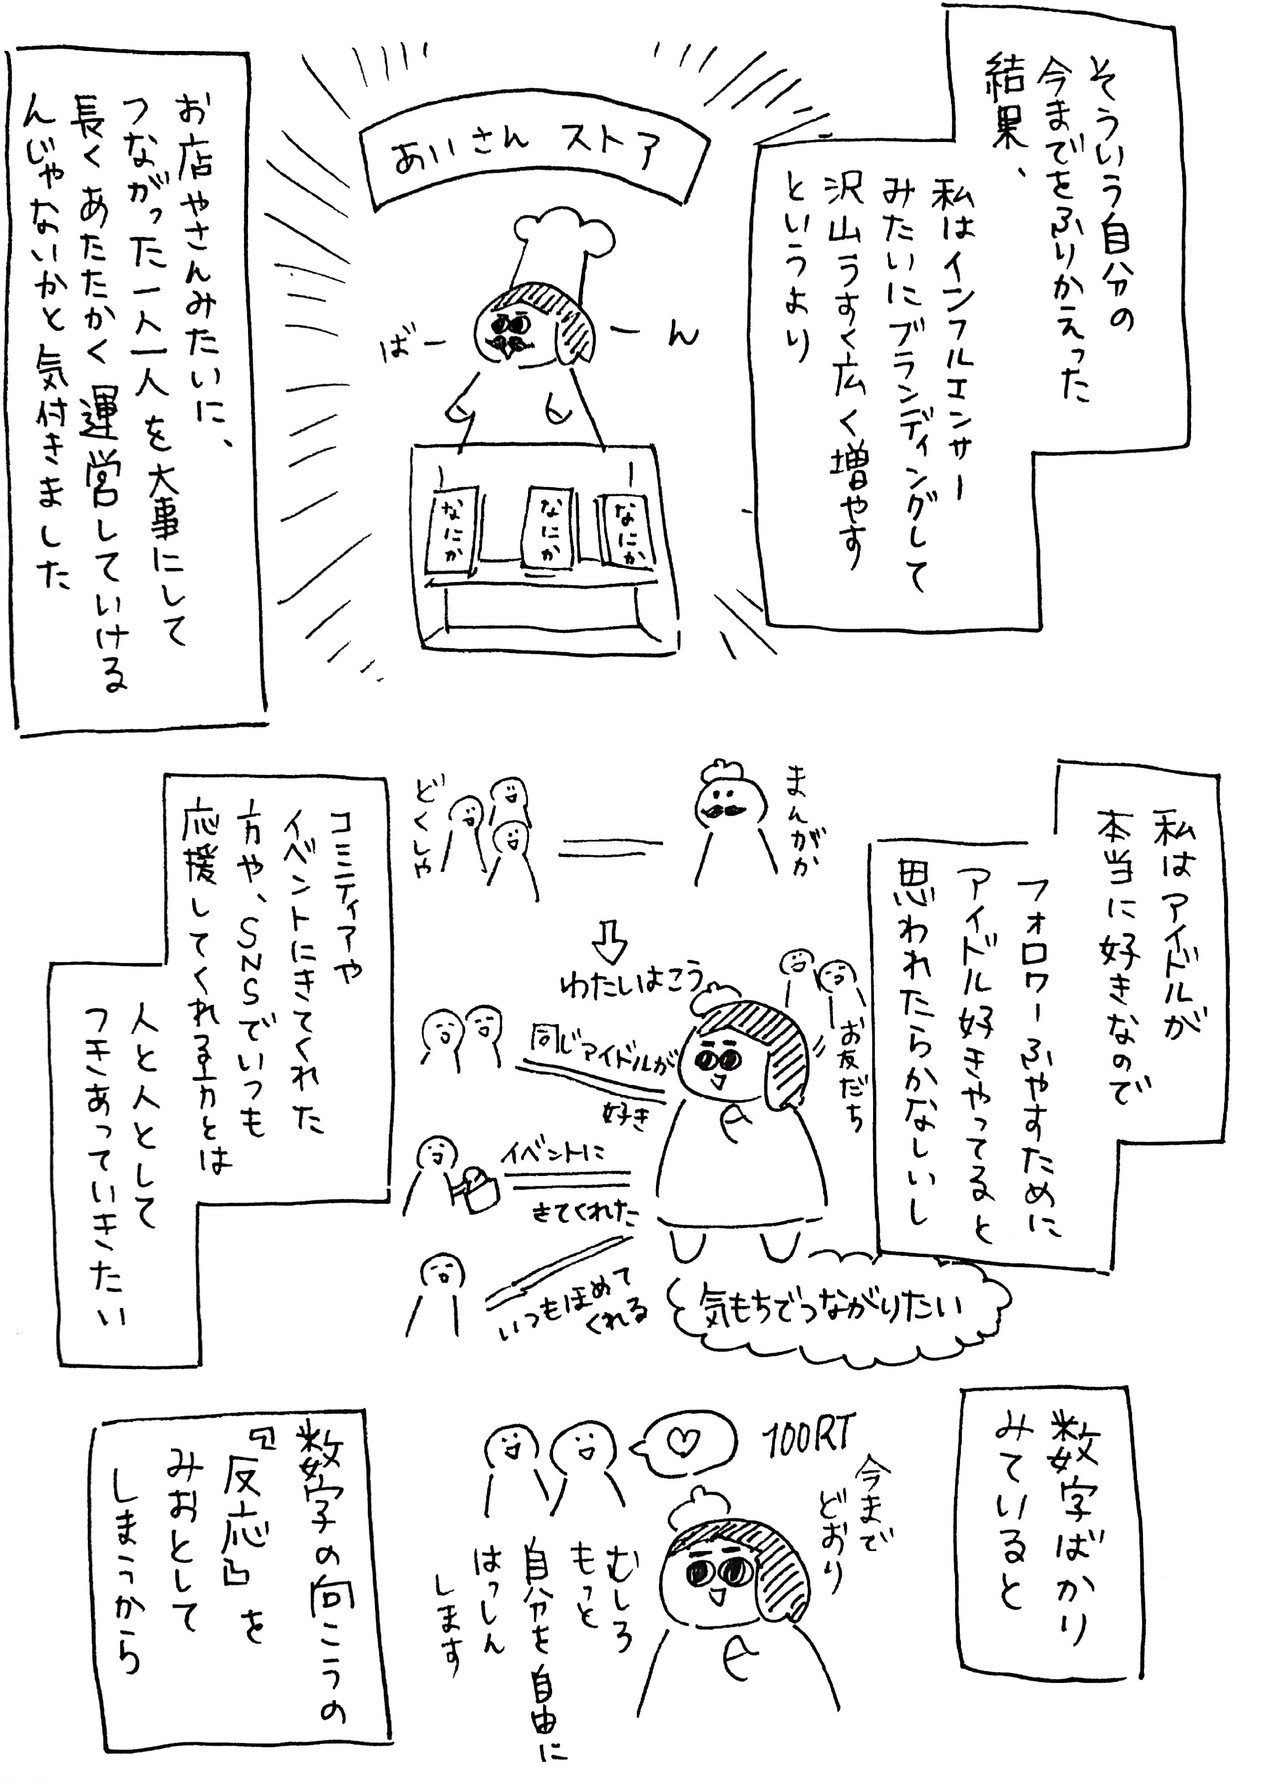 そういう自分の
今までをふりかえった
結果、
私はインフルエンサー
みたいにブランディングして
沢山うすく広く増やす
というより
あいさん ストア
ばーん
なにか
なにか
なにか
お店やさんみたいに、
つながった一人一人を大事にして
長くあたたかく運営していける
んじゃないかと気付きました
私はアイドルが
本当に好きなので
フォロワーふやすために
アイドル好きやってると
思われたらかなしいし
まんがか
どくしゃ
わたいはこう
お友だち
同じアイドルが
好き
イベントに
きてくれた
いつもほめて
くれる
気もちでつながりたい
コミティアや
イベントにきてくれた
方や、SNSでいつも
応援してくれる方とは
人と人として
つきあっていきたい
数字ばかり
みていると
100RT
今まで
どおり
むしろ
もっと
自分を自由に
はっしん
します
数字の向こうの
『反応』を
みおとして
しまうから